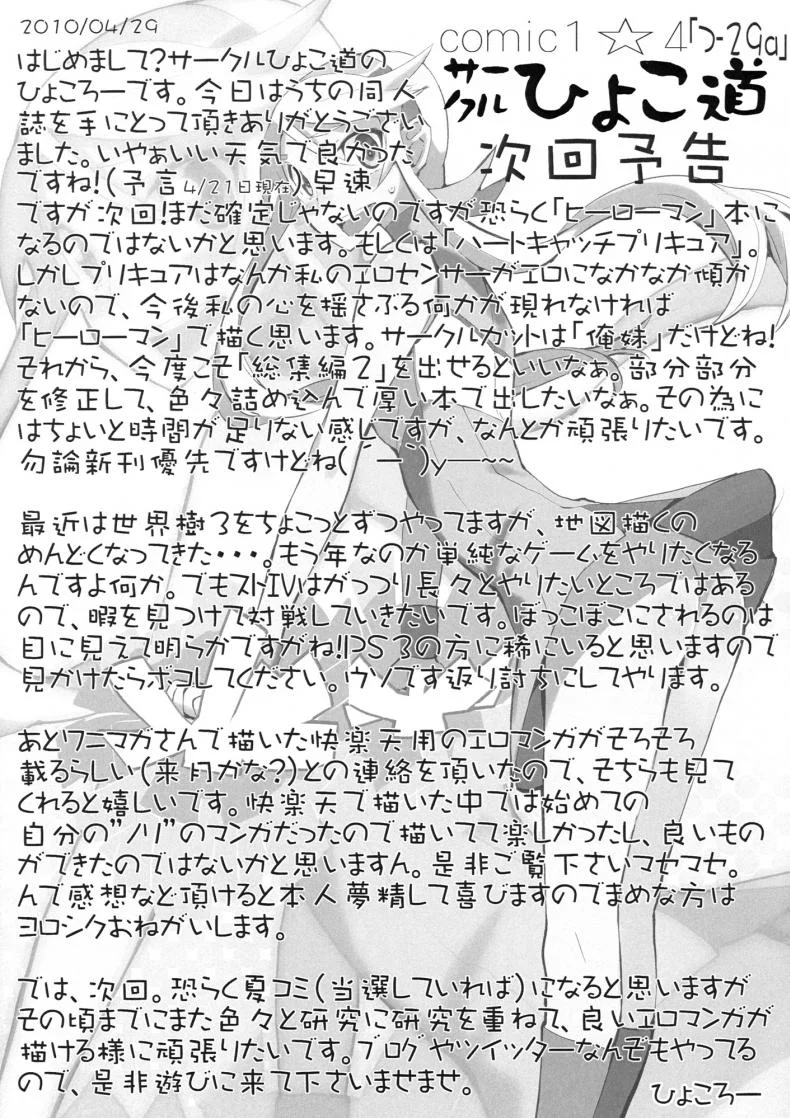 2010/04/29
comic1☆4「つ-29a」
サークルひよこ道
次回予告
はじめまして?サークルひょこ道の
ひょころーです。今日はうちの同人
誌を手にとって頂きありがとうござい
ました。いやぁいい天気で良かった
ですね!(予言4/21日現在)早速
ですが次回!まだ確定じゃないのですが恐らく「ヒーローマン」本に
なるのではないかと思います。もしくは「ハートキャッチプリキュア」。
しかしプリキュアはなんか私のエロセンサーがエロになかなか傾か
ないので、今後私の心を揺さぶる何かが現れなければ
「ヒーローマン」で描く思います。サークルカットは「俺妹」だけどね!
それから、今度こそ「総集編2」を出せるといいなぁ。部分部分
を修正して、色々詰め込んで厚い本で出したいなぁ。その為に
はちょいと時間が足りない感じですが、なんとか頑張りたいです。
勿論新刊優先ですけどね(´ー`)y─~~
最近は世界樹3をちょこっとずつやってますが、地図描くの
めんどくなってきた・・・。もう年なのか単純なゲームをやりたくなる
んですよ何か。でもストIVはがっつり長々とやりたいところではある
ので、暇を見つけて対戦していきたいです。ぼっこぼこにされるのは
目に見えて明らかですがね!PS3の方に稀にいると思いますので
見かけたらボコしてください。ウソです返り討ちにしてやります。
あとワニマガさんで描いた快楽天用のエロマンガがそろそろ
載るらしい(来月かな?)との連絡を頂いたので、そちらも見て
くれると嬉しいです。快楽天で描いた中では始めての
自分の"ノリ"のマンガだったので描いてて楽しかったし、良いもの
ができたのではないかと思いますん。是非ご覧下さいマセマセ。
んで感想など頂けると本人夢精して喜びますのでまめな方は
ヨロシクおねがいします。
では、次回。恐らく夏コミ(当選していれば)になると思いますが
その頃までにまた色々と研究に研究を重ねて、良いエロマンガが
描ける様に頑張りたいです。ブログやツイッターなんぞもやってる
ので、是非遊びに来て下さいませませ。
ひょころー